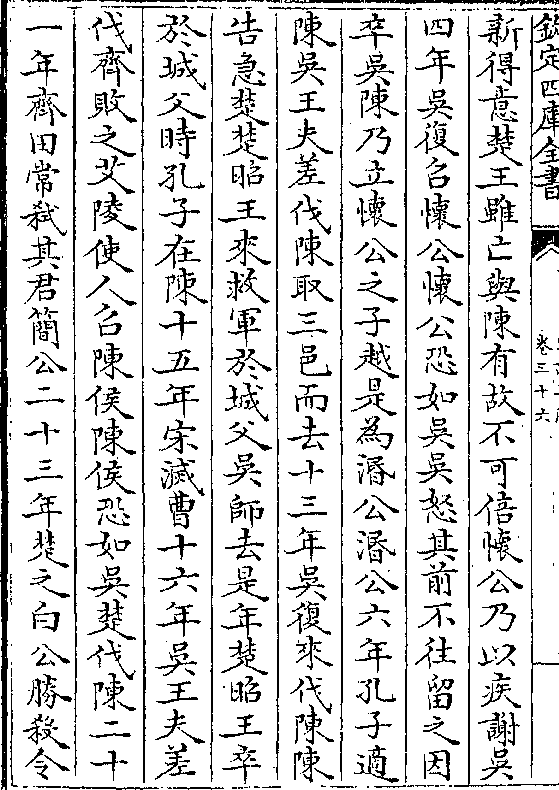 欽定四庫全書
卷三十六
新得意楚王雖亡與陳有故不可倍懷公乃以疾謝吳
四年吳復召懷公懷公恐如吳吳怒其前不往留之因
卒吳陳乃立懷公之子越是為湣公湣公六年孔子適
陳吳王夫差伐陳取三邑而去十三年吳復來伐陳陳
告急楚楚昭王來救軍於城父吳師去是年楚昭王卒
於城父時孔子在陳十五年宋滅曹十六年吳王夫差
伐齊敗之艾陵使人召陳侯陳侯恐如吳楚伐陳二十
一年齊田常弒其君簡公二十三年楚之白公勝殺令